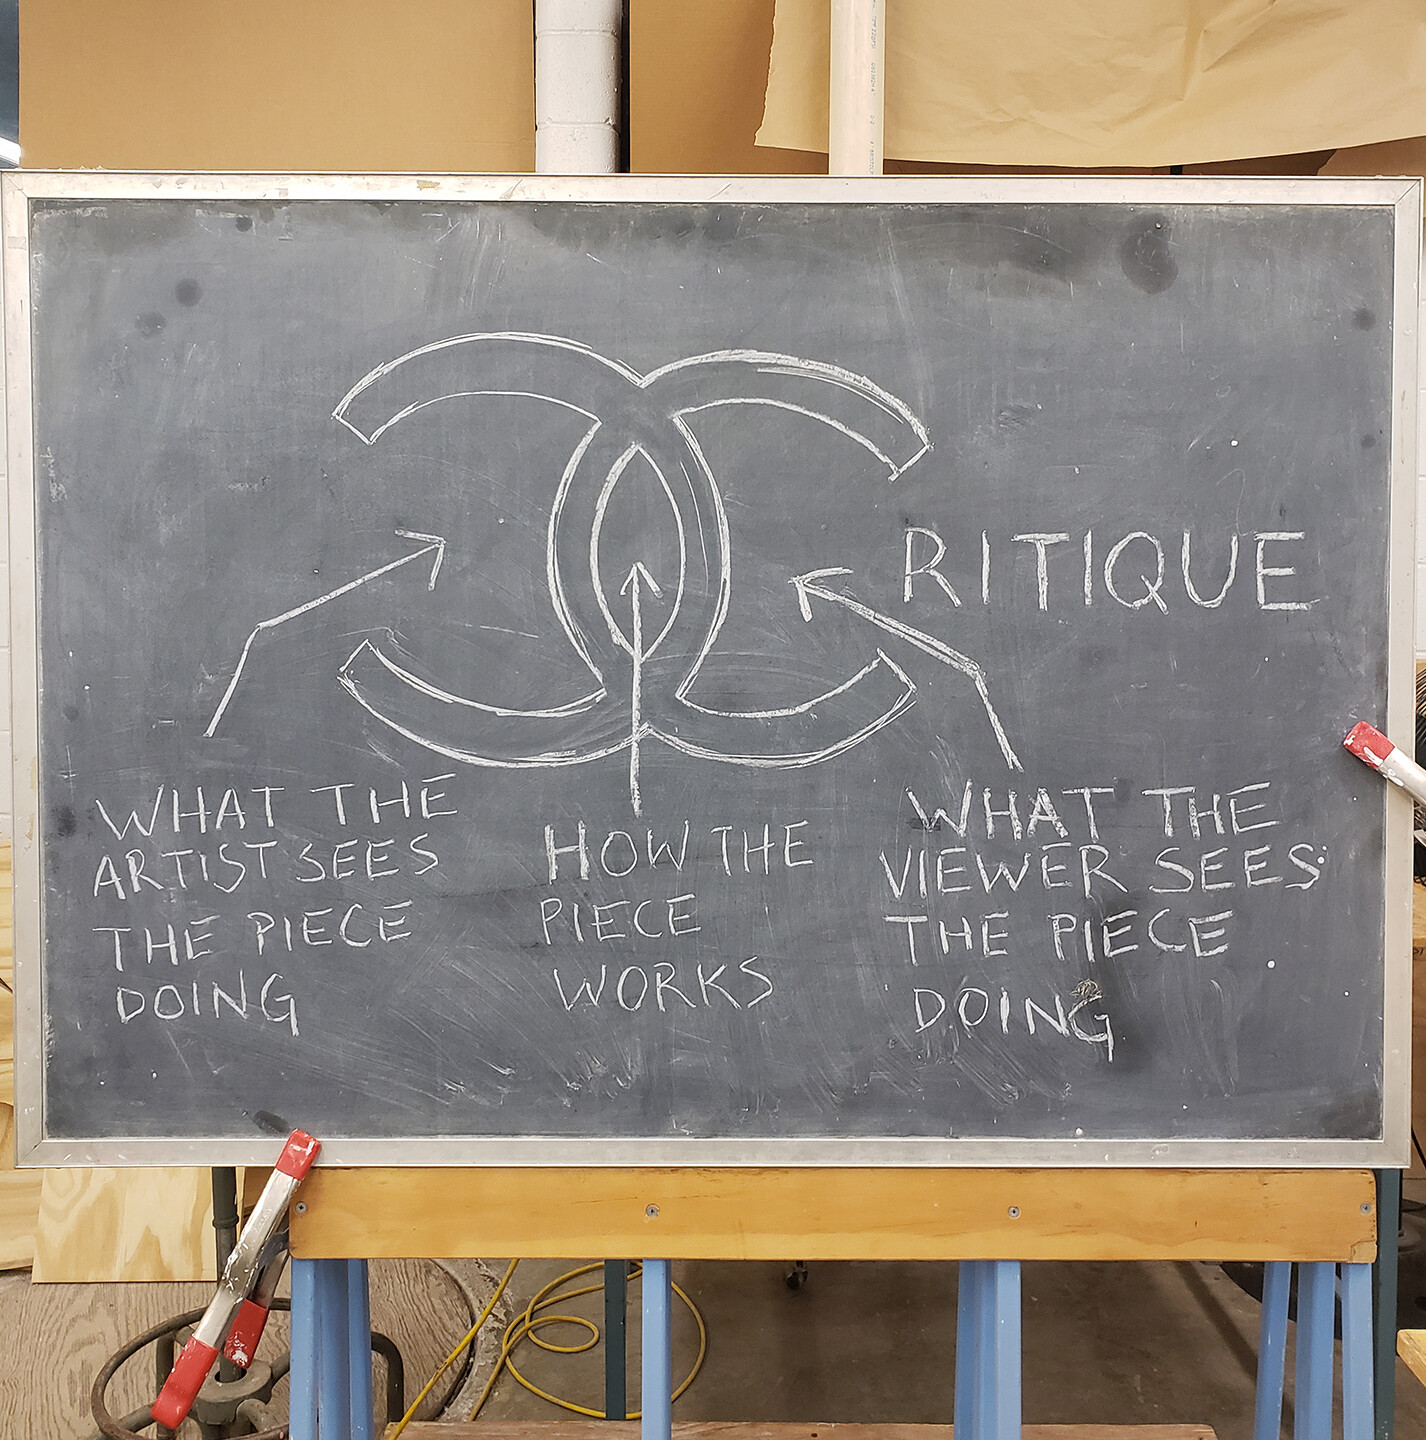 RITIQUE
WHAT THE
ARTIST SEES
THE PIECE
DOING
HOW THE
PIECE
WORKS
WHAT THE
VIEWER SEES
THE PIECE
DOING